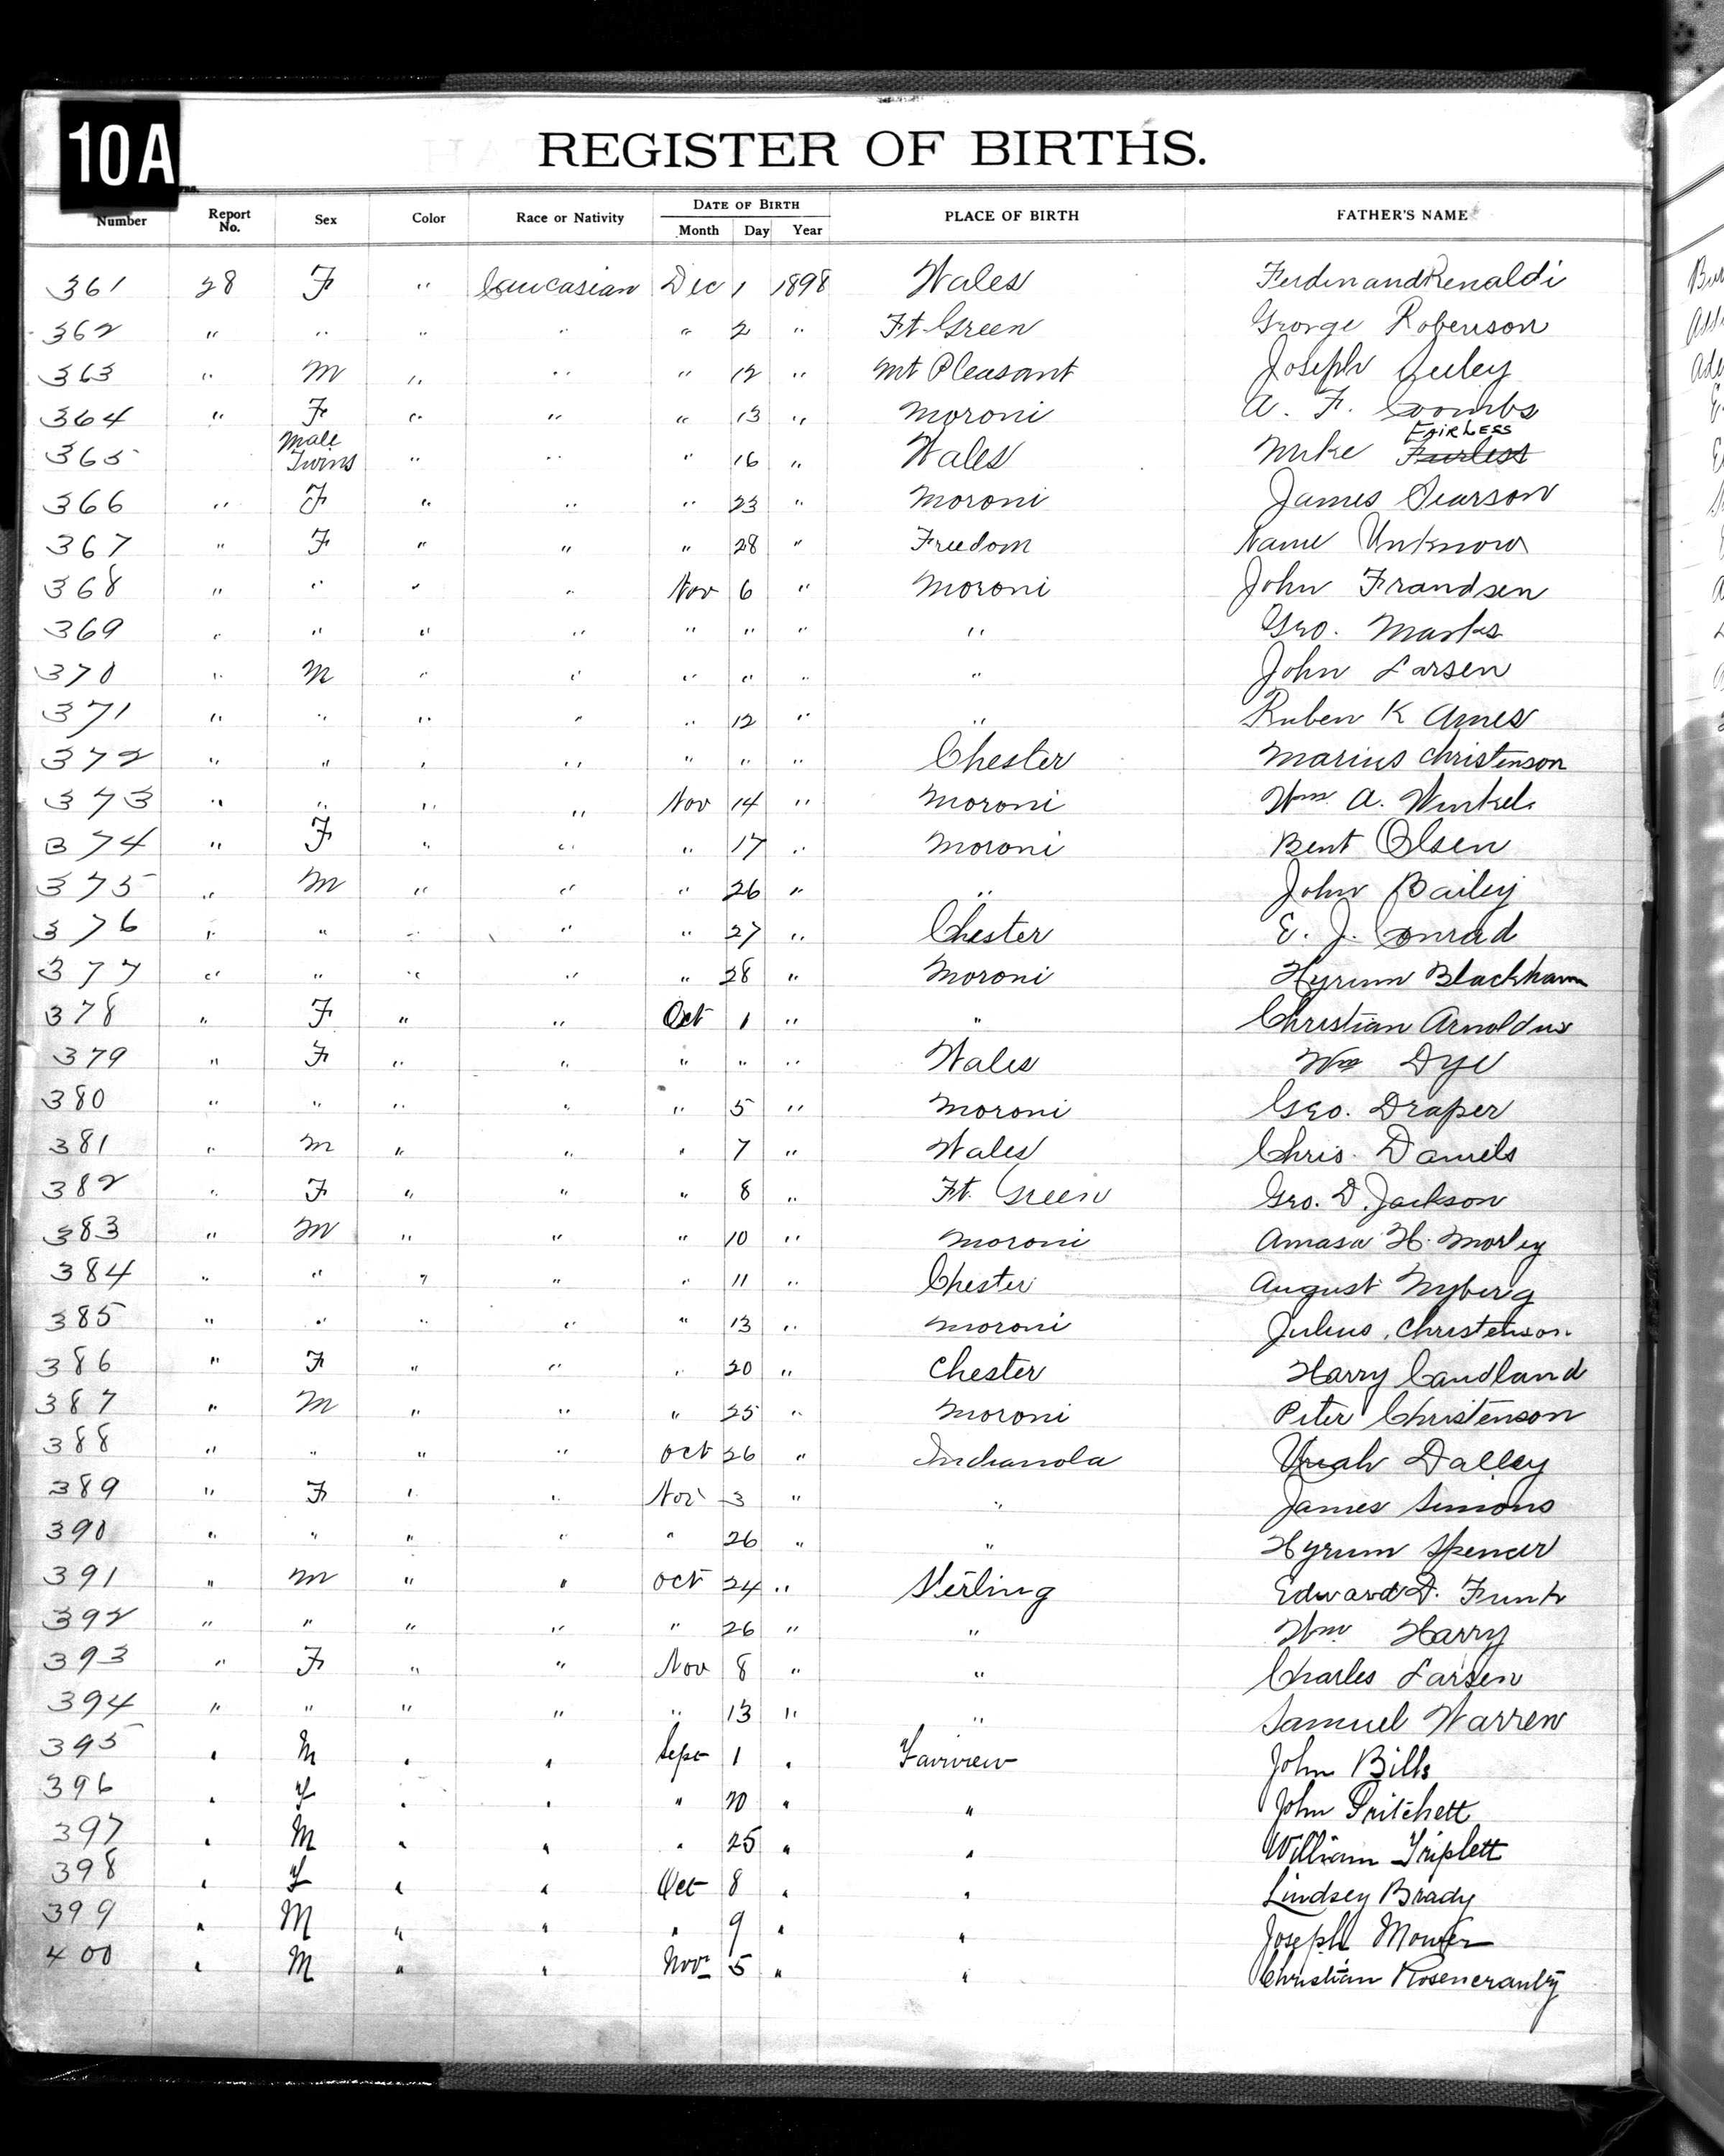 10A
REGISTER OF BIRTHS.
Number Report No. Sex Color Race or Nativity DATE OF BIRTH Month Day Year PLACE OF BIRTH FATHER'S NAME
361 28 F " Caucasian Dec 1 1898 Wales Ferdinand Renaldi
362 " " " " " 2 " Ft Green George Robenson
363 " M " " " 12 " Mt Pleasant Joseph Seeley
364 " F " " " 13 " Moroni A. F. Coombs
365 Male Twins " " " 16 " Wales Mike Fairless FAIRLESS
366 " F " " " 23 " Moroni James Pearson
367 " F " " " 28 " Freedom Name Unknown
368 " " " " Nov 6 " Moroni John Frandsen
369 " " " " " " " " Geo. Marks
370 " M " " " " " " John Larsen
371 " " " " " 12 " " Ruben K Ames
372 " " " " " " " Chester Marius Christenson
373 " " " " Nov 14 " Moroni Wm A. Winkel
374 " F " " " 17 " Moroni Bent Olsen
375 " M " " " 26 " " John Bailey
376 " " " " " 27 " Chester E. J. Conrad
377 " " " " " 28 " Moroni Hyrum Blackham
378 " F " " Oct 1 " " Christian Arnoldus
379 " F " " " " " Wales Wm Dye
380 " " " " " 5 " Moroni Geo. Draper
381 " M " " " 7 " Wales Chris. Daniels
382 " F " " " 8 " Ft. Green Geo. D. Jackson
383 " M " " " 10 " Moroni Amasa H. Morley
384 " " " " " 11 " Chester August Nyberg
385 " " " " " 13 " Moroni Julius Christenson
386 " F " " " 20 " Chester Harry Candland
387 " M " " " 25 " Moroni Peter Christenson
388 " " " " Oct 26 " Indianola Uriah Dalley
389 " F " " Nov 3 " " James Simons
390 " " " " " 26 " " Hyrum Spencer
391 " M " " Oct 24 " Sterling Edward D. Funk
392 " " " " " 26 " " Wm Harry
393 " F " " Nov 8 " " Charles Larsen
394 " " " " " 13 " " Samuel Warren
395 " M " " Sept 1 " Fairview John Bills
396 " F " " " 20 " " John Pritchett
397 " M " " " 25 " " William Triplett
398 " F " " Oct 8 " " Lindsey Brady
399 " M " " " 9 " " Joseph Mower
400 " M " " Nov 5 " " Christian Rosencrantz